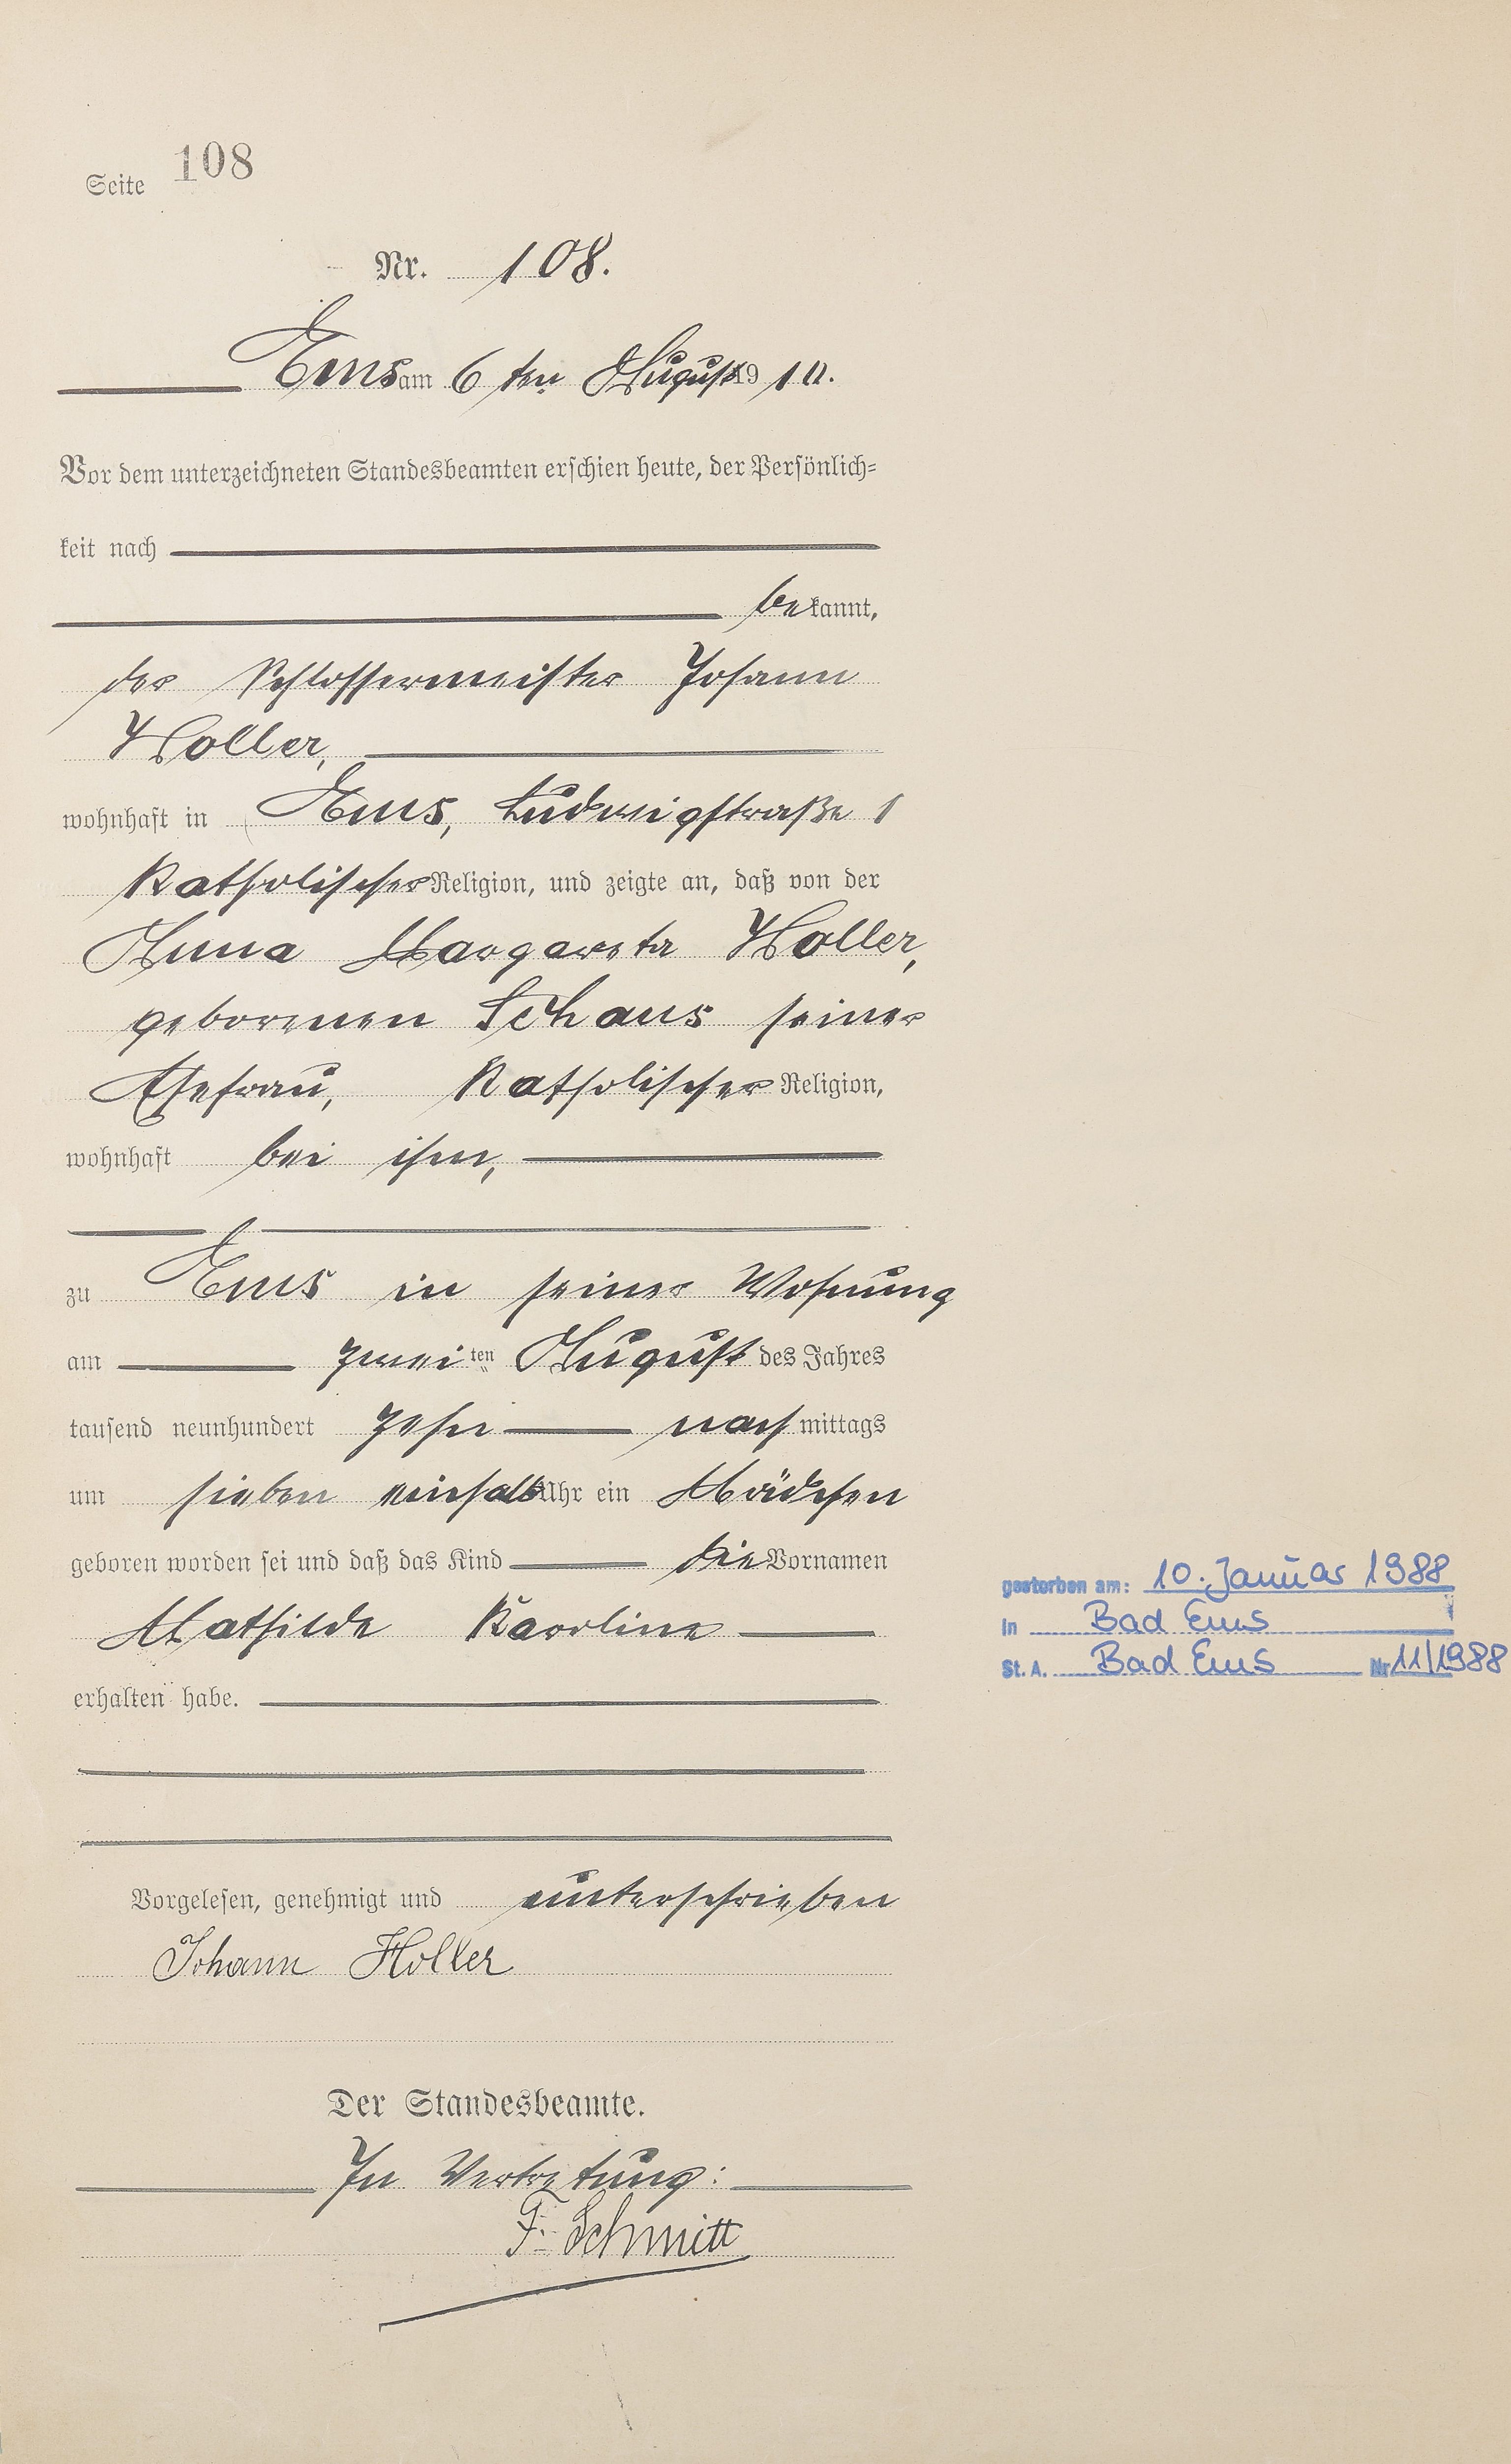 Seite 108
Nr. 108.
Ems am 6 ten August 1910.
Vor dem unterzeichneten Standesbeamten erschien heute, der Persönlich-
keit nach
bekannt,
der Schlossermeister Johann
Holler,
wohnhaft in Ems, Ludwigstraße 1
Katholischer Religion, und zeigte an, daß von der
Anna Margareta Holler,
geborenen Schaus seiner
Ehefrau, Katholischer Religion,
wohnhaft bei ihm,
zu Ems in seiner Wohnung
am zweiten August des Jahres
tausend neunhundert zehn nachmittags
um sieben einhalb Uhr ein Mädchen
geboren worden sei und daß das Kind die Vornamen
Mathilde Karoline
erhalten habe.
gestorben am: 10. Januar 1988
in Bad Ems
St. A. Bad Ems Nr 11/1988
Vorgelesen, genehmigt und unterschrieben
Johann Holler
Der Standesbeamte.
In Vertretung:
F. Schmitt